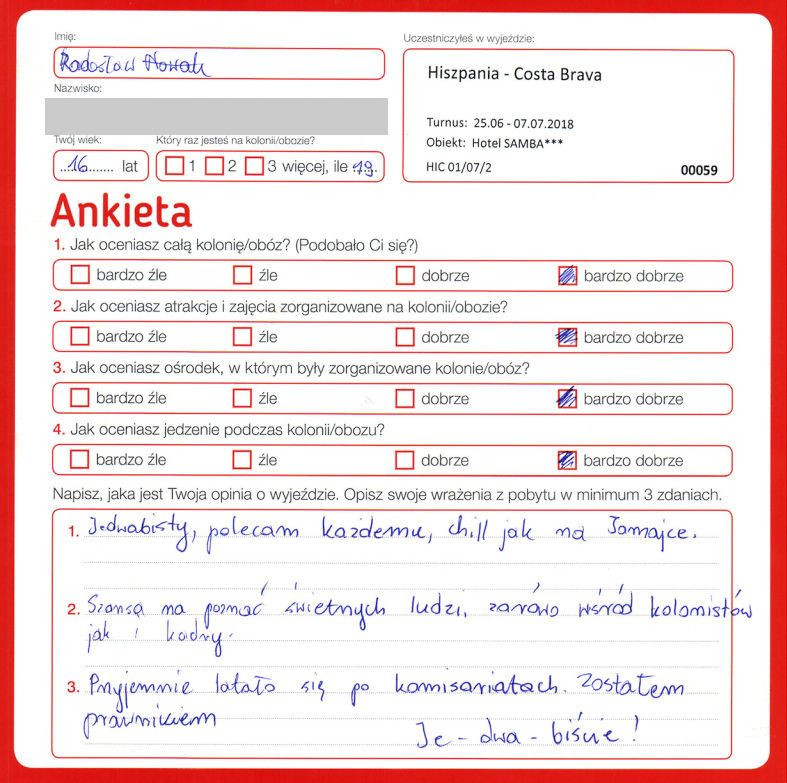 Imię:
Radosław Nowak
Uczestniczyłeś w wyjeździe:
Hiszpania - Costa Brava
Nazwisko:
Turnus: 25.06 - 07.07.2018
Obiekt: Hotel SAMBA***
HIC 01/07/2
00059
Twój wiek:
Który raz jesteś na kolonii/obozie?
16 lat
1 2 3 więcej, ile 19
Ankieta
1. Jak oceniasz całą kolonię/obóz? (Podobało Ci się?)
bardzo źle źle dobrze bardzo dobrze
2. Jak oceniasz atrakcje i zajęcia zorganizowane na kolonii/obozie?
bardzo źle źle dobrze bardzo dobrze
3. Jak oceniasz ośrodek, w którym były zorganizowane kolonie/obóz?
bardzo źle źle dobrze bardzo dobrze
4. Jak oceniasz jedzenie podczas kolonii/obozu?
bardzo źle źle dobrze bardzo dobrze
Napisz, jaka jest Twoja opinia o wyjeździe. Opisz swoje wrażenia z pobytu w minimum 3 zdaniach.
1. Jedwabisty, polecam każdemu, chill jak na Jamajce.
2. Szansa na poznać świetnych ludzi, zarówo wśród kolonistów
jak i kadry.
3. Przyjemnie latało się po komisariatach. Zostałem
prawnikiem
Je - dwa - biście!